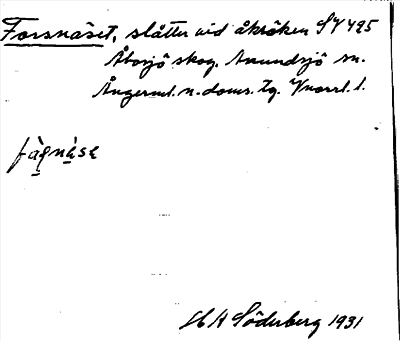 Forsnäset, slåtter vid åkröken SY 495
Åborjö skog. Anundsjö sn.
Ångerml. n. doms. tg. Vnorrl. l.
H A Söderberg 1931